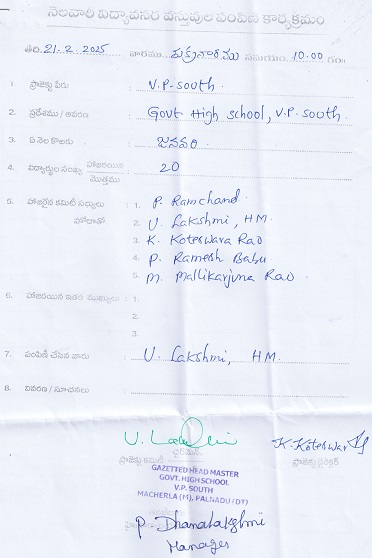 నెలవారీ విద్యావసర వస్తువుల పంపిణీ కార్యక్రమం
తేది. 21.2.2025 వారము శుక్రవారము సమయం. 10.00 గం॥
1. ప్రాజెక్టు పేరు : V.P. south
2. ప్రదేశము / ఆవరణ : Govt High school, V.P. south.
3. ఏ నెల కొఱకు : జనవరి
4. విద్యార్థుల సంఖ్య హాజరయిన : 20
మొత్తము
5. హాజరైన కమిటీ సభ్యులు : 1. P. Ramchand
హోదాతో 2. U. Lakshmi, HM
3. K. Koteswara Rao
4. P. Ramesh Babu
5. M. Mallikarjuna Rao
6. హాజరయిన ఇతర ముఖ్యులు : 1.
2.
3.
7. పంపిణీ చేసిన వారు : U. Lakshmi, HM.
8. వివరణ / సూచనలు :
K. Koteswar
ప్రాజెక్టు కమిటీ ఛైర్మెన్ ప్రాజెక్టు డైరెక్టర్
GAZETTED HEAD MASTER
GOVT. HIGH SCHOOL
V.P. SOUTH
MACHERLA (M), PALNADU (DT)
P. Dhanalakshmi
Manager